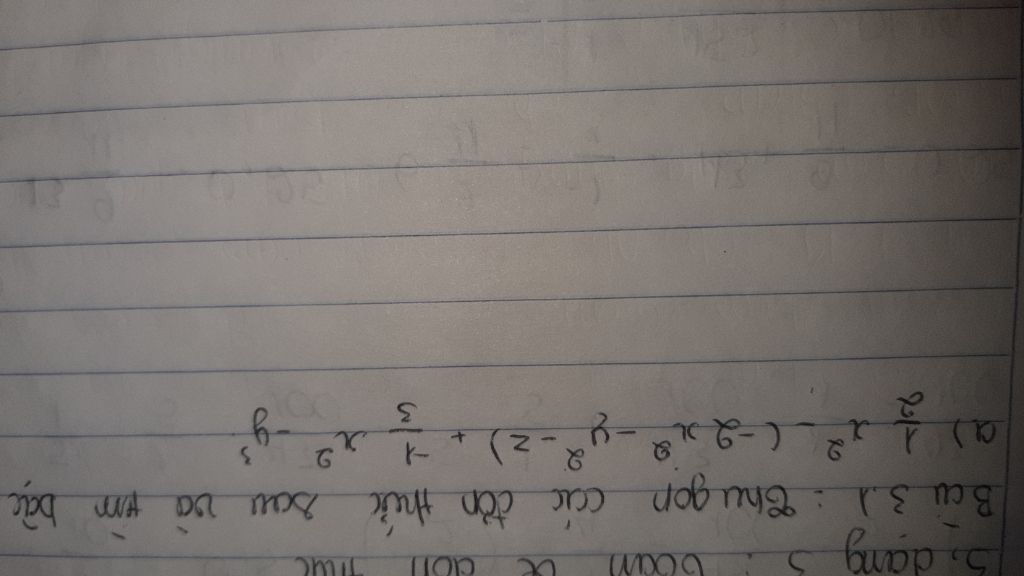 5, dạng 3: toán về đơn thức
Bài 3.1: Thu gọn các đơn thức sau và tìm bậc
a) 1/2 x² - (-2x² - y² - z) + -1/3 x² - y³